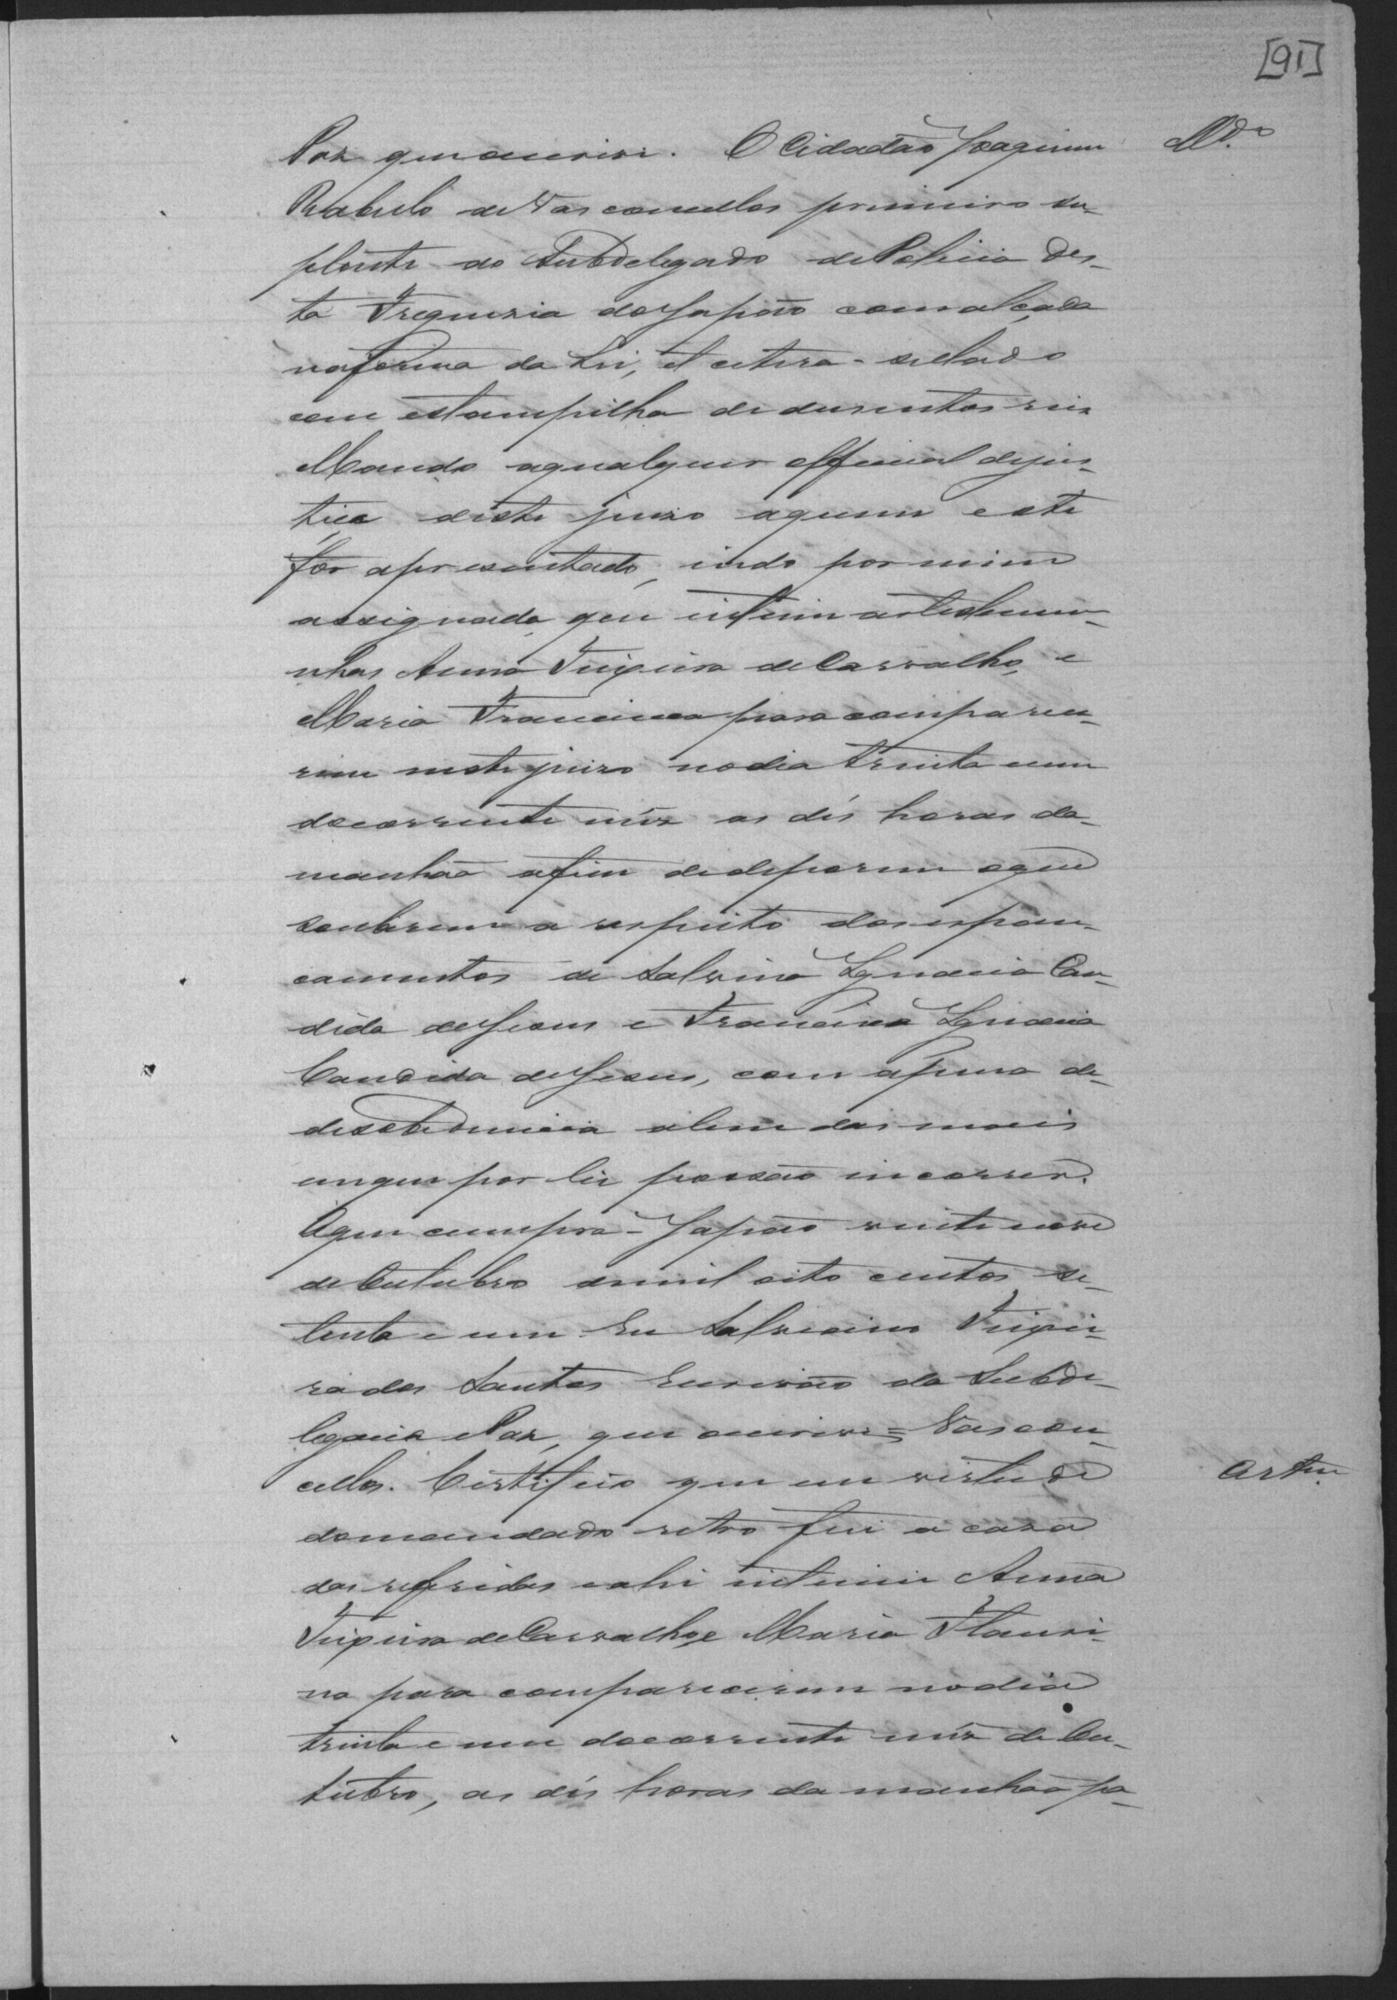 [91]
Paz que escrivi. O Cidadão Joaquim Mdo.
Rabelo de Vasconcellos primeiro su-
plente do Subdelegado de Policia des-
ta Freguesia do Japão com alçada
na forma da Lei, et cetera - sellado
com estampilha de dusentos reis
Mando a qualquer official de jus-
tiça deste juizo a quem este
for apresentado, indo por mim
assignado que intime as testemu-
nhas Anna Teixeira de Carvalho, e
Maria Francisca para comparece-
rem neste juizo no dia trinta e um
do corrente mêz as dés horas da
manhãa afim de deporem o que
souberem a respeito dos espan-
camentos de Salvina Ignacia Can-
dida de Jesus e Francisca Ignacia
Candida de Jesus, com a pena de
desobediencia alem das mais
em que por lei possão incorrer.
O que cumpra - Japão vinte nove
de Outubro de mil oito centos se-
tenta e um Eu Salviano Teixei-
ra dos Santos Escrivão da Subde-
legacia e Paz, que escrivi = Vascon-
cellos. Certifico que em virtude
do mandado retro fui a casa
das referidas e ahi intimei Anna
Teixeira de Carvalho, e Maria
na para comparecerem no dia
trinta e um do corrente mêz de Ou-
tubro, as dés horas da manhãa pa-